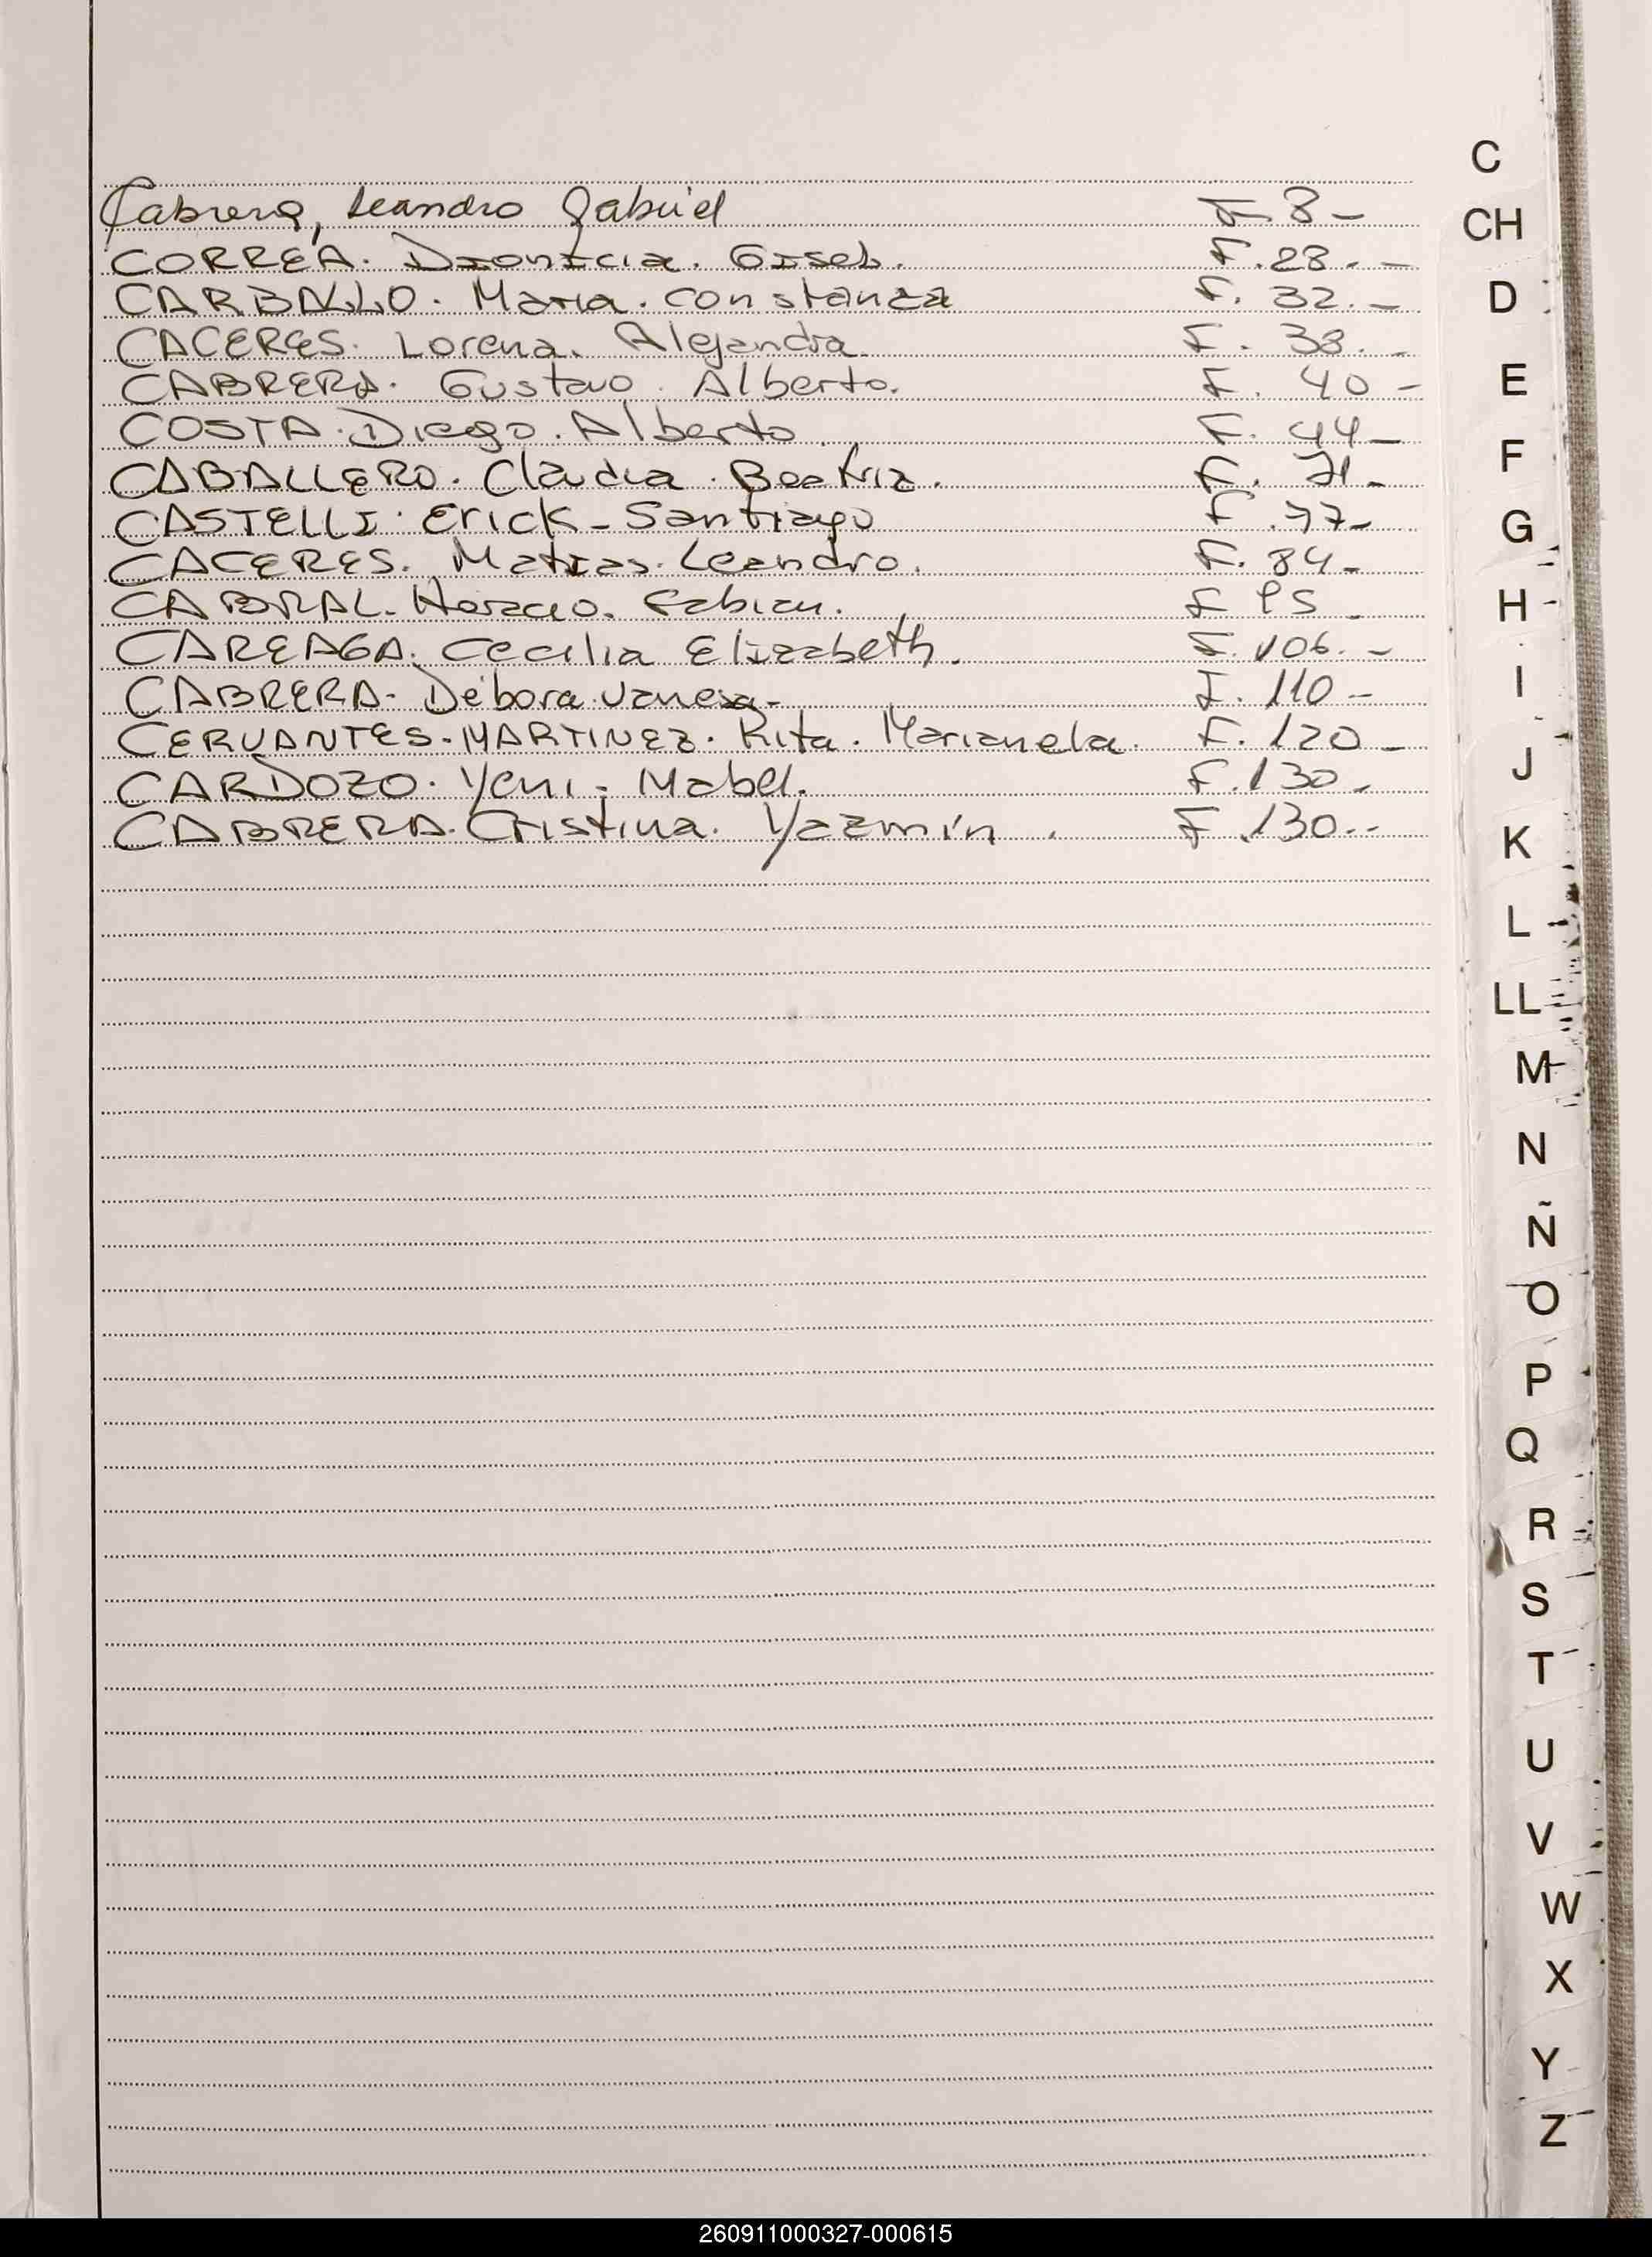 C
Cabrera, Leandro Gabriel F. 8-
CH
CORREA. Dionicia. Gisel. F. 28.-
CARBALLO. Maria. Constanza F. 32.-
D
CACERES. Lorena. Alejandra. F. 38.-
CABRERA. Gustavo. Alberto. F. 40-
E
COSTA. Diego. Alberto. F. 44-
F
CABALLERO. Claudia. Beatriz. F. 71-
CASTELLI. Erick-Santiago F. 77-
G
CACERES. Matias. Leandro. F. 84-
CABRAL. Horacio. Fabian. F 95-
H
CAREAGA. Cecilia Elizabeth. F. 106.-
CABRERA- Débora Vanesa- F. 110-
I
CERVANTES-MARTINEZ. Rita. Marianela. F. 120-
J
CARDOZO. Yeni. Mabel. F. 130-
CABRERA. Cristina. Yazmín. F. 130--
K
L
LL
M
N
Ñ
O
P
Q
R
S
T
U
V
W
X
Y
Z
260911000327-000615